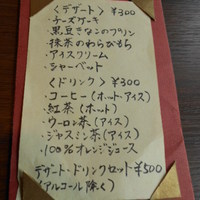 〈デザート〉 ¥300
・チーズケーキ
・黒豆きなこのプリン
・抹茶のわらびもち
・アイスクリーム
・シャーベット
〈ドリンク〉 ¥300
・コーヒー(ホット・アイス)
・紅茶(ホット)
・ウーロン茶(アイス)
・ジャスミン茶(アイス)
・100%オレンジジュース
デザート・ドリンクセット ¥500
(アルコール除く)